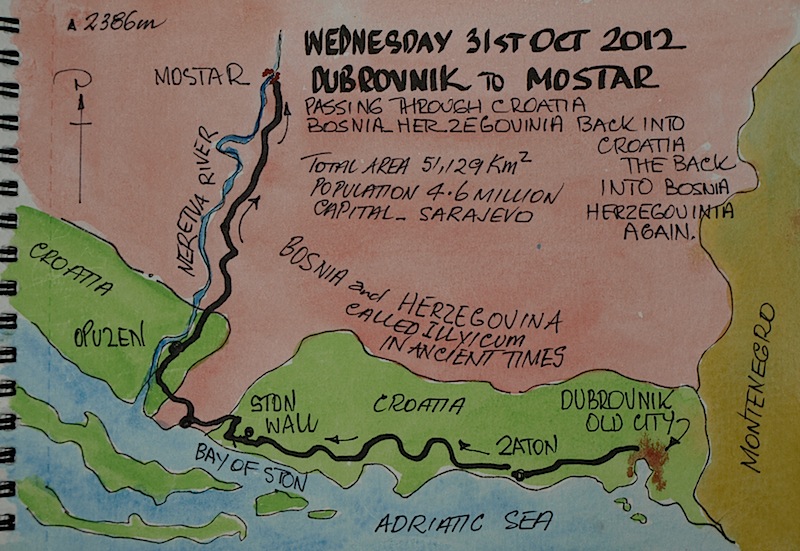 ▲ 2386m
WEDNESDAY 31ST OCT 2012
DUBROVNIK TO MOSTAR
PASSING THROUGH CROATIA
BOSNIA HERZEGOVINIA BACK INTO
CROATIA
THE BACK
INTO BOSNIA
HERZEGOVINIA
AGAIN.
TOTAL AREA 51,129 Km²
POPULATION 4.6 MILLION
CAPITAL - SARAJEVO
MOSTAR
NERETVA RIVER
BOSNIA and HERZEGOVINA
CALLED ILLYICUM
IN ANCIENT TIMES
CROATIA
OPUZEN
STON
WALL
CROATIA
DUBROVNIK
OLD CITY
ZATON
BAY OF STON
ADRIATIC SEA
MONTENEGRO